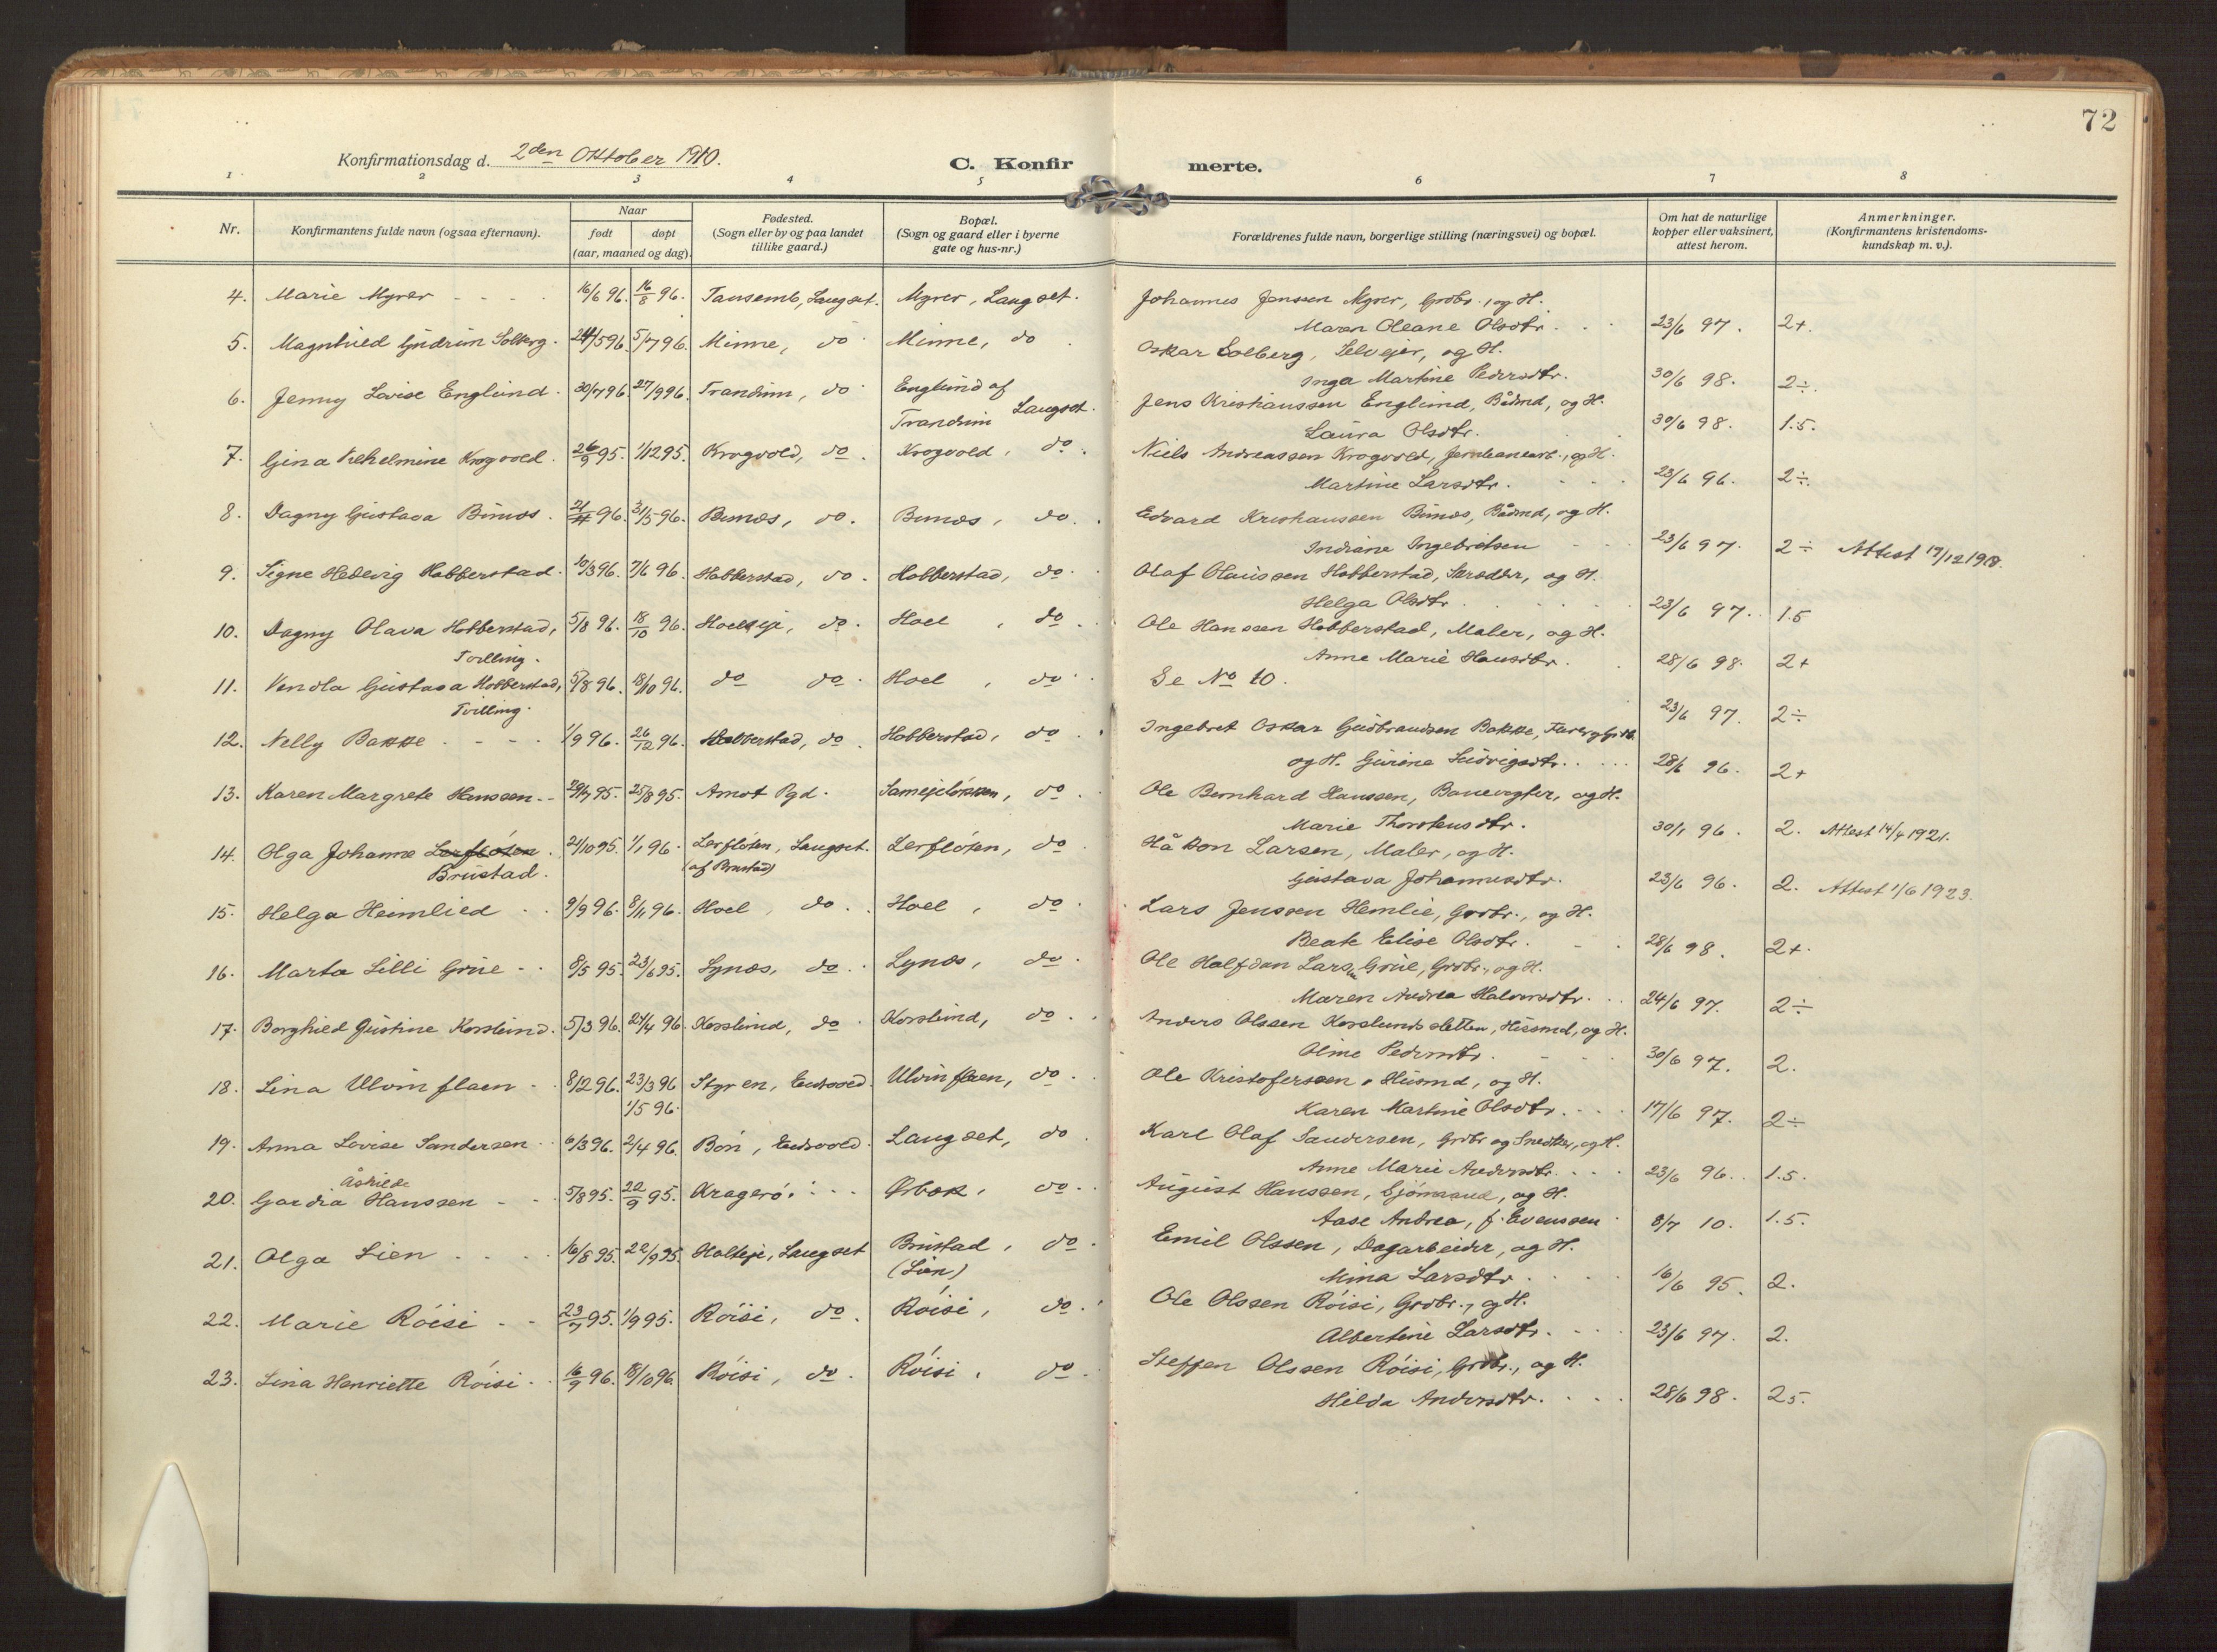 72
Konfirmationsdag d. 2den Oktober 1910.
C. Konfir merte.
1 2 3 4 5 6 7 8
Nr.
Konfirmantens fulde navn (ogsaa efternavn).
Naar
født døpt
(aar, maaned og dag)
Fødested.
(Sogn eller by og paa landet
tillike gaard.)
Bopæl.
(Sogn og gaard eller i byerne
gate og hus-nr.)
Forældrenes fulde navn, borgerlige stilling (næringsvei) og bopæl.
Om hat de naturlige
kopper eller vaksinert,
attest herom.
Anmerkninger.
(Konfirmantens kristendoms-
kundskap m. v.).
4. Marie Myrer 16/6 96. 16/8 96. Tausemb, Laugset. Myrer, Laugset. Johannes Jenssen Myrer, Grdbr., og H.
Maren Oleane Olsdtr. 23/6 97. 2+.
5. Magnhild Gudrun Solberg. 24/5 96. 5/7 96. Minne, do Minne, do Oskar Solberg, Selvejer, og H.
Inga Martine Pedersdtr. 30/6 98. 2÷.
6. Jenny Lovise Englund. 30/7 96. 27/9 96. Trandum, do Englund af
Trandum Laugset. Jens Kristianssen Englund, Bådmd, og H.
Laura Olsdtr. 30/6 98. 1.5.
7. Gina Vilhelmine Krogvold. 26/9 95. 1/12 95. Krogvold, do. Krogvold, do. Niels Andreassen Krogvold, Jernbanearb., og H.
Martine Larsdtr. 23/6 96. 2÷.
8. Dagny Gustava Bunæs. 21/4 96. 3/5 96. Bunæs, do. Bunæs, do. Edvard Kristianssen Bunæs, Bådmd, og H.
Indiane Ingebretsen 23/6 97. 2÷ Attest 17/12 1918.
9. Signe Hedevig Habberstad. 10/3 96. 7/6 96. Habberstad, do. Habberstad, do. Olaf Olaussen Habberstad, Skrædder, og H.
Helga Olsdtr. 23/6 97. 1.5
10. Dagny Olava Habberstad, 5/8 96. 18/10 96. Hoelseje, do. Hoel, do. Ole Hanssen Habberstad, Maler, og H.
Tvilling. Anne Marie Hansdtr. 28/6 98. 2+
11. Vendla Gustava Habberstad, 5/8 96. 18/10 96. do do. Hoel, do. Se No 10.
Tvilling. 23/6 97. 2÷
12. Nelly Bakke 1/9 96. 26/12 96. Habberstad, do. Habberstad, do. Ingebret Oskar Gudbrandsen Bakke,
og H. Gurine Ludvigsdtr. 28/6 96. 2+
13. Karen Margrete Hanssen. 29/7 95. 25/8 95. Amot Pgd. do. Ole Bernhard Hanssen, Banevogter, og H.
Marie Thorstensdtr. 30/1 96. 2. Attest 14/4 1921.
14. Olga Johanne Lerflóten. 21/10 95. 1/1 96. Lerflóten, Laugset. Lerflóten, do Håkon Larsen, Maler, og H.
Brustad. (af Brustad) Gustava Johannesdtr. 23/6 96. 2. Attest 1/6 1923.
15. Helga Heimlied 9/9 96. 8/11 96. Hoel, do. Hoel, do. Lars Jenssen Hemlie, Grdbr., og H.
Beate Elise Olsdtr. 28/6 98. 2+.
16. Marta Lilli Grue 8/5 95. 23/6 95. Lynæs, do. Lynæs, do. Ole Halfdan Larsen Grue, Grdbr., og H.
Maren Andrea Halvorsdtr. 24/6 97. 2÷
17. Borghild Justine Korslund. 5/3 96. 21/4 96. Korslund, do. Korslund, do. Anders Olssen Korslundsletten, Husmd, og H.
Oline Pedersdtr. 30/6 97. 2.
18. Lina Ulvinflaen 8/2 96. 23/3 96 Styren, Eidsvold. Ulvinflaen, do. Ole Kristoferssen, Husmd, og H.
1/5 96. Karen Martine Olsdtr. 17/6 97. 2÷
19. Anna Lovise Sandersen 6/3 96. 2/4 96. Bón, Eidsvold. Laugset, do Karl Olaf Sandersen, Grdbr og Snedker, og H.
Anne Marie Andersdtr. 23/6 96. 1.5.
Åshilde
20. Gardia Hanssen 5/8 95. 22/9 95. Krageró. Ørbæk, do. August Hanssen, Sjómand, og H.
Aase Andrea, f. Evenssen 8/7 10. 1.5.
21. Olga Lien 16/8 95. 22/9 95. Holteje, Laugset Brustad, do. Emil Olssen, Dagarbeider, og H.
(Lien) Mina Larsdtr. 16/6 95. 2.
22. Marie Róisi 23/7 95. 1/9 95. Róisi, do. Róisi, do. Ole Olssen Róisi, Grdbr., og H.
Albertine Larsdtr. 23/6 97. 2.
23. Lina Henriette Róisi. 16/9 96. 18/10 96. Róisi, do. Róisi, do. Steffen Olssen Róisi, Grdbr., og H.
Hilda Andersdtr. 28/6 98. 25.